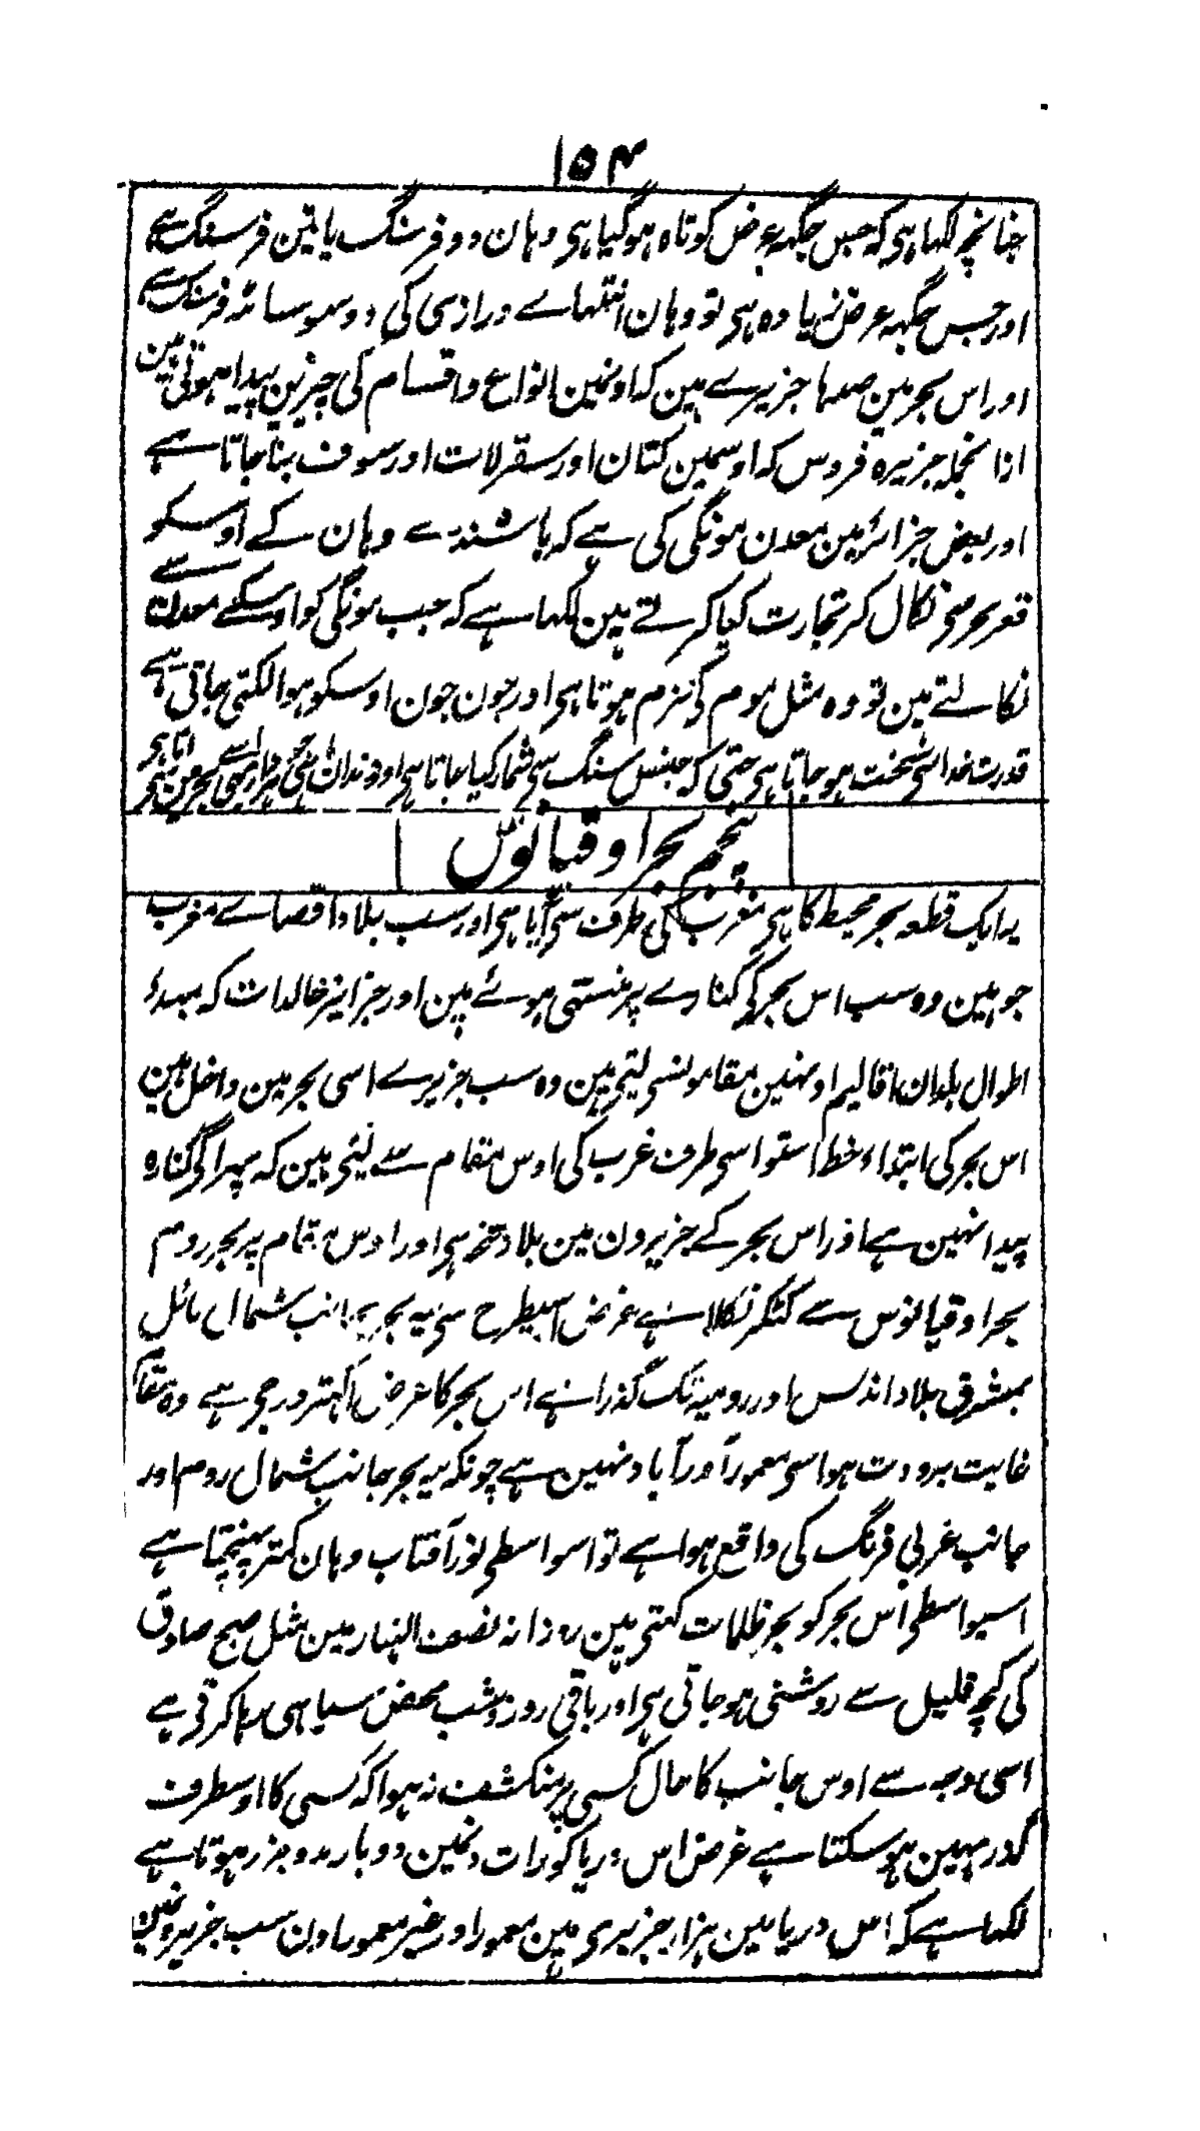 ۱۵۴
چنانچہ لکھا ہی کہ جس جگہہ عرض کوتاہ ہوگیا ہی وہان دو فرسنگ یا تین فرسنگ ہے
اور جس جگہہ عرض زیادہ ہی تو وہان انتہاے درازی کی دوسو ساٹھ فرسنگ ہے
اور اس بحر مین صدہا جزیرے ہین کہ اونمین انواع و اقسام کی چیزین پیدا ہوتی ہین
ازانجملہ جزیرہ فروس کہ اوسمین کتان اور سقرلات اور سوف بنا جاتا ہے
اور بعض جزائر مین معدن مونگی کی ہے کہ باشندے وہان کے اوسکو
قعر بحر سی نکال کر تجارت کیا کرتے ہین لکھا ہے کہ جب مونگی کو اوسکے معدن سے
نکالتے ہین تو وہ مثل موم کی نرم ہوتا ہی اور جون جون اوسکو ہوا لگتی جاتی ہے
قدرت خدا سی سخت ہو جاتا ہی حتی کہ جنس سنگ سی شمار کیا جاتا ہی اور دندان
پنجم بحر اوقیانوس
یہ ایک قطعہ بحر محیط کا ہی مغرب کی طرف سی آیا ہی اور سب بلاد اقصاے مغرب
جو ہین وہ سب اس بحر کی کنارے پر منتہی ہوئے ہین اور جزایر خالدات کہ مبدء
اطوال بلدان اقالیم اونہین مقامونسی لیتی ہین وہ سب جزیرے اسی بحر مین داخل ہین
اس بحر کی ابتداء خط استوا سی طرف غرب کی اوس مقام سے لیتی ہین کہ پہر اگی کنارہ
پیدا نہین ہے اور اس بحر کے جزیرون مین بلاد ہی اور اوس مقام پر بحر روم
بحر اوقیانوس سے کٹکر نکلا ہے غرض اسیطرح سی یہ بحر بجانب شمال مائل
بمشرق بلاد اندلس اور رومیہ تک گذرا ہے اس بحر کا عرض اکہتر درجی ہے وہ مقام
غایت برودت ہوا سی معمور اور آباد نہین ہے چونکہ یہ بحر جانب شمال روم اور
جانب غربی فرنگ کی واقع ہوا ہے تو اسواسطی نور آفتاب وہان کمتر پہنچتا ہے
اسیواسطی اس بحر کو بحر ظلمات کہتی ہین روزانہ نصف النہار مین مثل صبح صادق
کی کچھ قلیل سے روشنی ہو جاتی ہی اور باقی روز و شب محض سیاہی رہا کرتی ہے
اسی وجہ سے اوس جانب کا حال کسی پر منکشف نہ ہوا کہ کسی کا اوسطرف
گذر نہین ہو سکتا ہے غرض اس دریا کو رات دنمین دو بار مد و جزر ہوتا ہے
لکھا ہے کہ اس دریا مین ہزارہا جزیری ہین معمور اور غیر معمور اون سب جزیرونمین